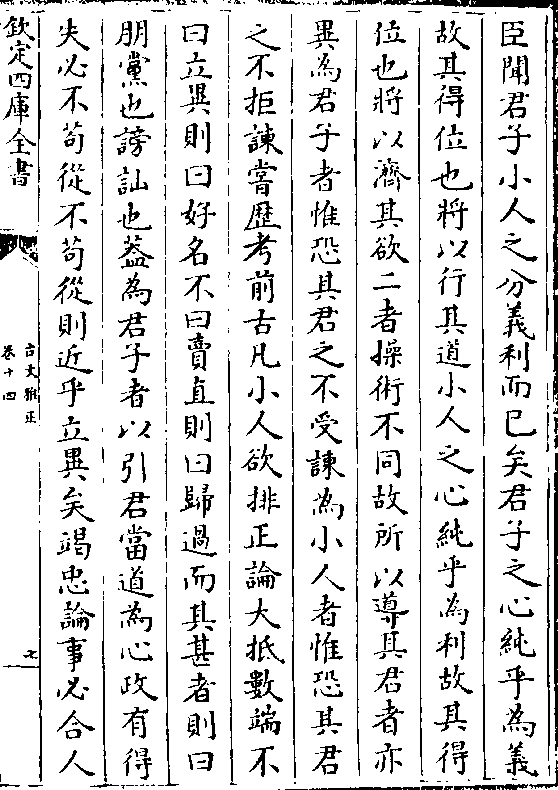 臣聞君子小人之分義利而已矣君子之心純乎為義
故其得位也將以行其道小人之心純乎為利故其得
位也將以濟其欲二者操術不同故所以導其君者亦
異為君子者惟恐其君之不受諫為小人者惟恐其君
之不拒諫嘗歴考前古凡小人欲排正論大抵數端不
曰立異則曰好名不曰賣直則曰歸過而其甚者則曰
朋黨也謗訕也葢為君子者以引君當道為心政有得
失必不苟從不苟從則近乎立異矣竭忠論事必合人
欽定四庫全書
古文雅正
卷十四